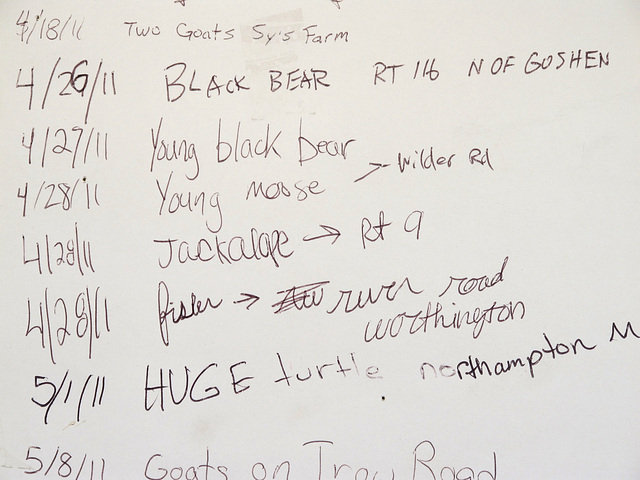 4/18/11 Two Goats Sy's Farm
4/26/11 BLACK BEAR RT 116 N OF GOSHEN
4/27/11 Young black bear
> Wilder Rd
4/28/11 Young moose
4/28/11 Jackalope → Rt 9
4/28/11 fisher → river road
worthington
5/1/11 HUGE turtle northampton M
5/8/11 Goats on Troy Road